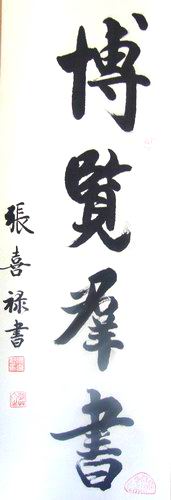 博覽羣書
張喜禄書